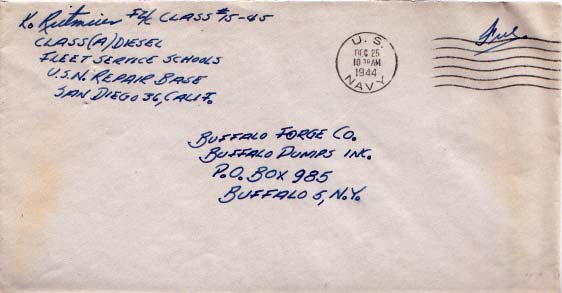 K. Rutmeier F2/C CLASS #15-45
CLASS(A) DIESEL
FLEET SERVICE SCHOOLS
U.S.N. REPAIR BASE
SAN DIEGO 36, CALIF.
U. S.
DEC 25
10 30 AM
1944
NAVY
Free
BUFFALO FORGE CO.
BUFFALO PUMPS INC.
P.O. BOX 985
BUFFALO 5, N.Y.